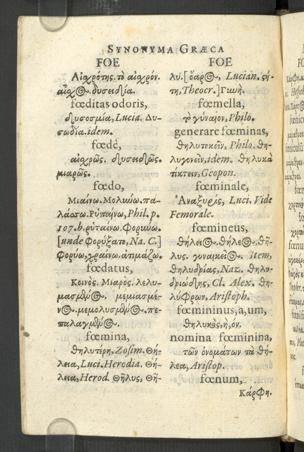 SYNONYMA GRÆCA
FOE
Αἰσχρότης. τὸ αἰσχρόν.
αἰσχος. δυσειδία.
fœditas odoris,
δυσοσμία, Lucia. Δυ-
σωδία. idem.
fœdè,
αἰσχρῶς. δυσειδῶς.
μιαρῶς.
fœdo,
Μιαίνω. Μολύνω. πα-
λάσσω. Ρυπαίνω, Phil. p.
107. b. ρυπαίνω. Φορύνω.
[unde Φορύξατε, Na. C.]
Φορύνω. χραίνω. ἀτιμάζω.
fœdatus,
Κεινός. Μιαρός. λελυ-
μασμένος. μεμιασμέ-
νος. μεμολυσμένος. πε-
παλαγμένος.
fœmina,
θηλυτέρη, Zosim. θή-
λεια, Luci. Herodia. θή-
λεια, Herod. θῆλυς, θη-
FOE
λυ. [ὄαρος, Lucian. ςή-
τη, Theocr.] Γυνή.
fœmella,
τὸ γύναιον, Philo.
generare fœminas,
θηλυτοκεῖν, Philo. θη-
λυγονεῖν, idem. θηλυκὰ
τίκτειν, Geopon.
fœminale,
Ἀναξυρίς, Luci. Vide
Femorale.
fœmineus,
θηλαῖος. θήλεος. θῆ-
λυς. γυναικεῖος. item,
θηλυδρίας, Naz. θηλυ-
δριώδης, Cl. Alex. θη-
λύφρων, Aristoph.
fœmininus, a, um,
θηλυκὸς, ή, όν.
nomina fœminina,
τῶν ὀνομάτων τὰ θή-
λεα, Aristop.
fœnum,
Κάρφη.